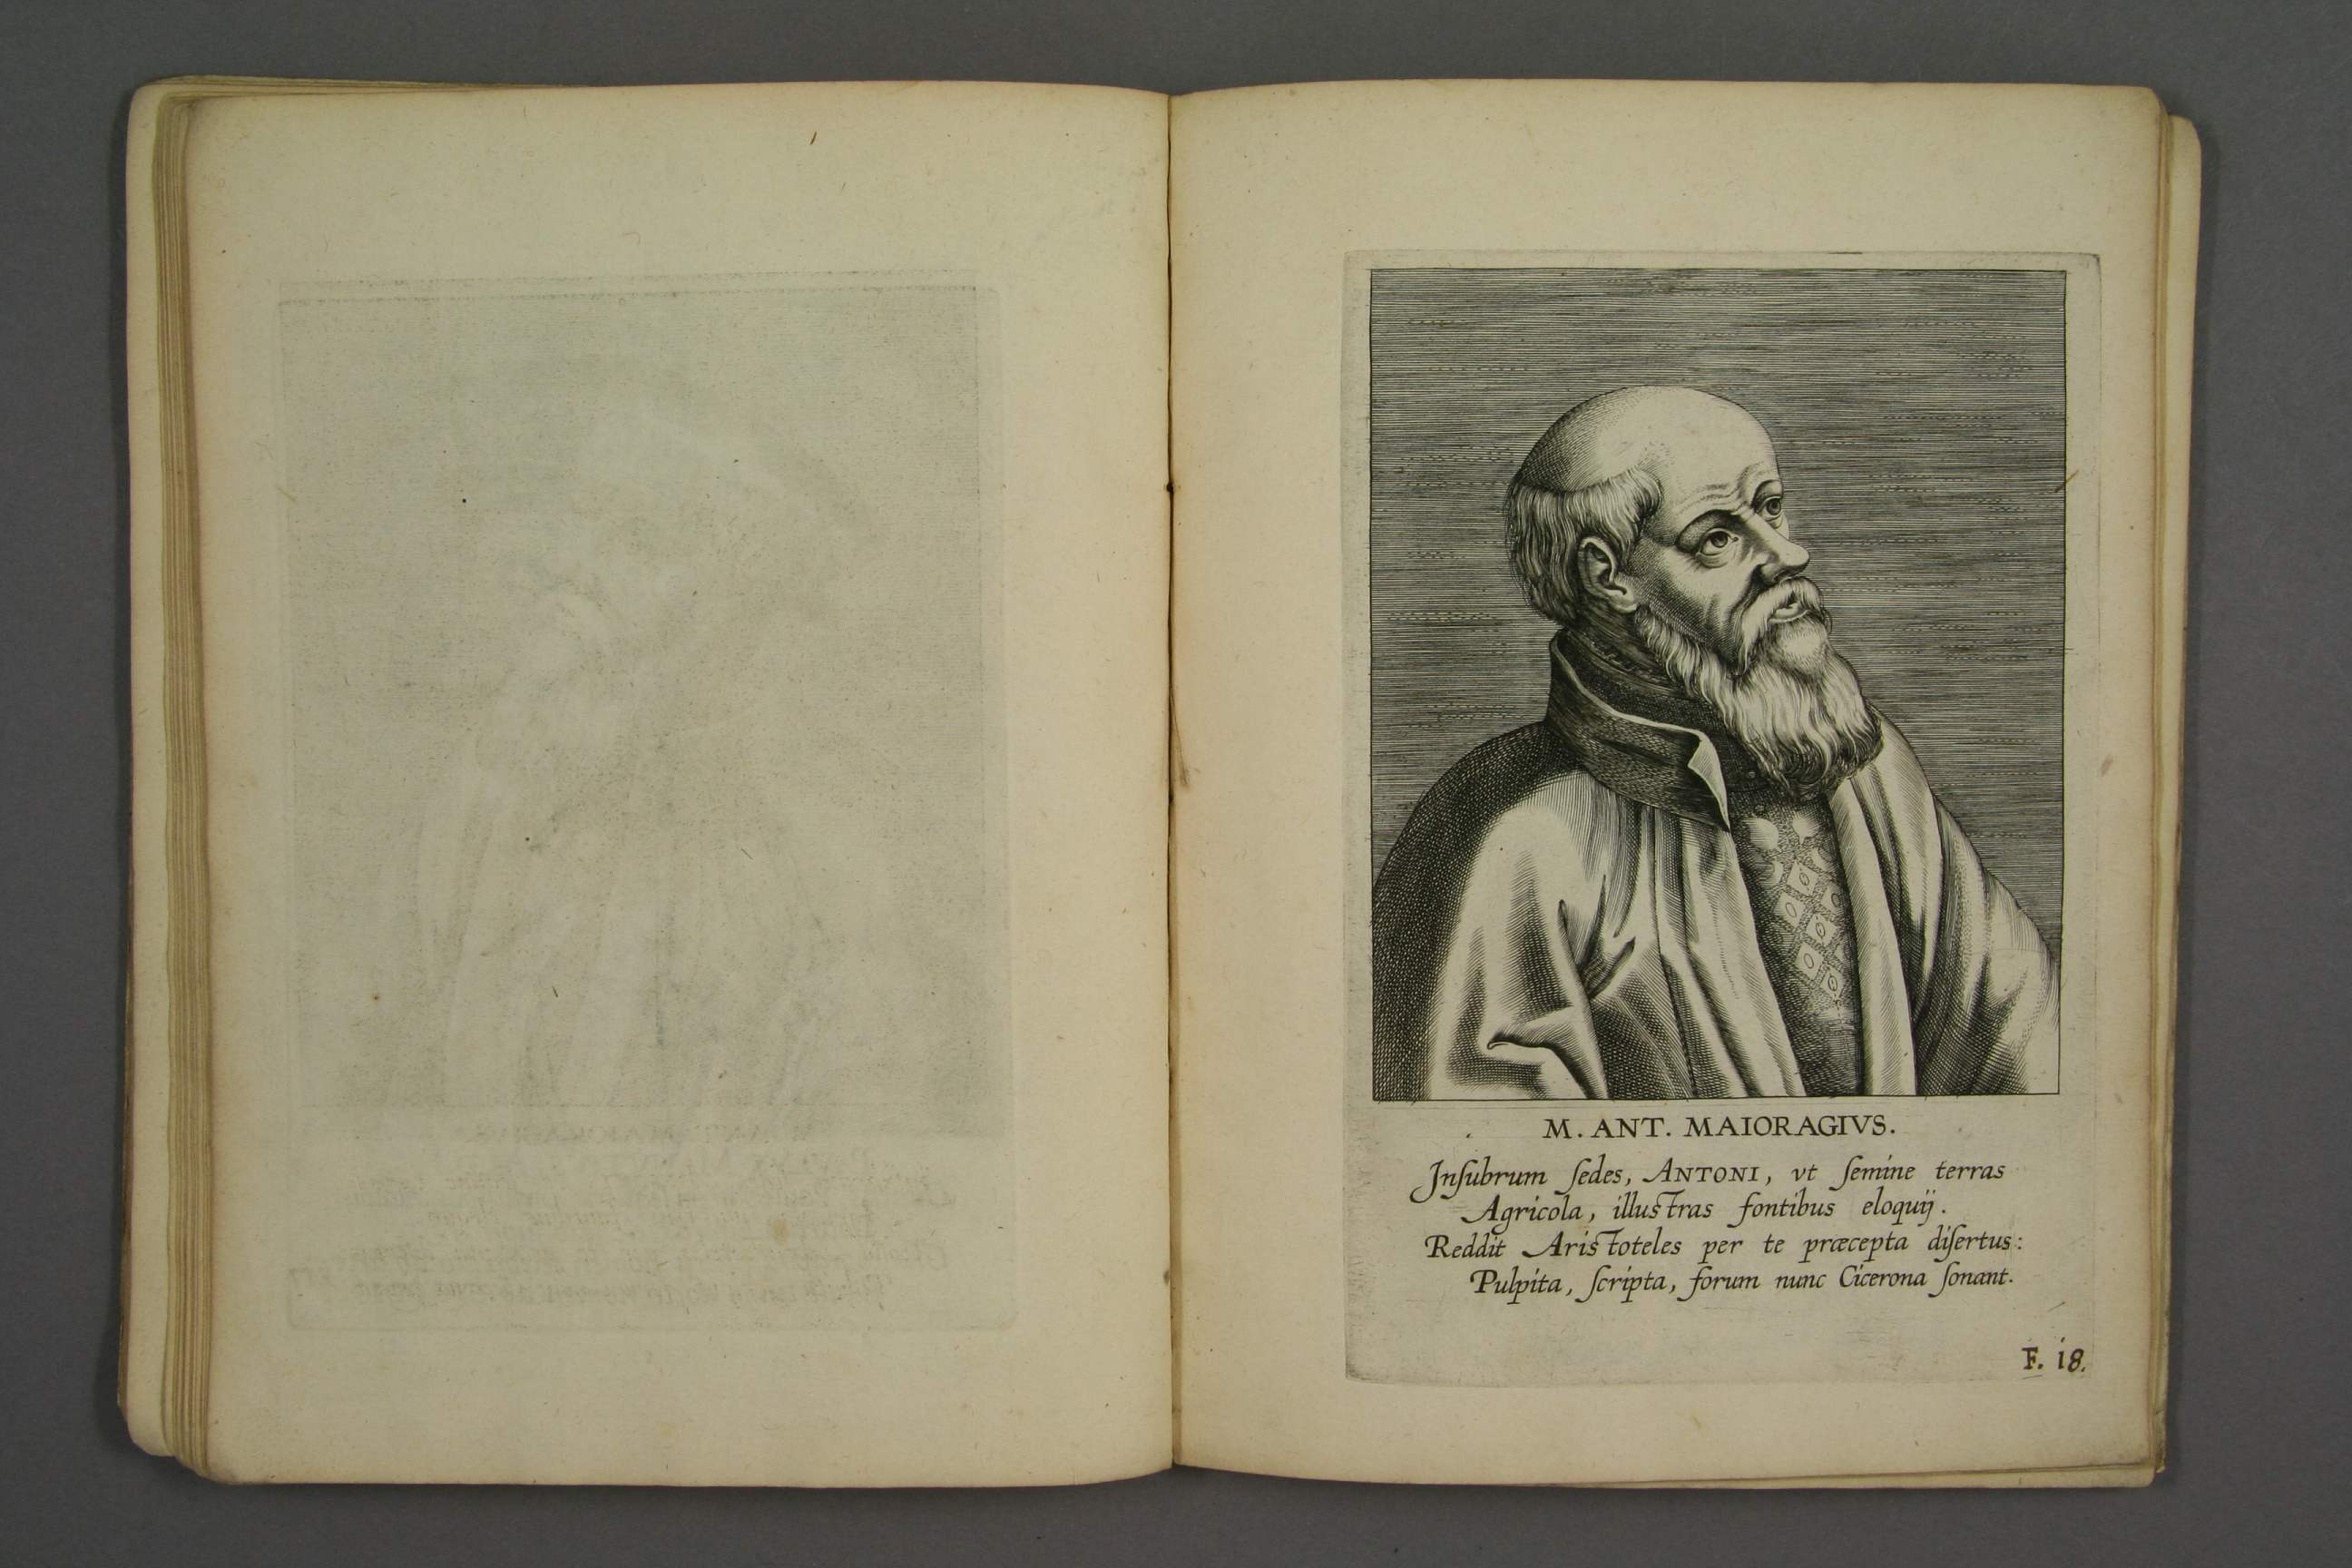 M. ANT. MAIORAGIVS.
Inſubrum ſedes, ANTONI, vt ſemine terras
Agricola, illuſtras fontibus eloquij.
Reddit Ariſtoteles per te præcepta diſertus:
Pulpita, ſcripta, forum nunc Cicerona ſonant.
F. i8.